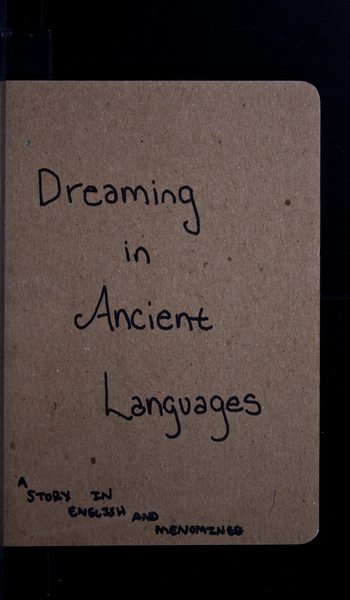 Dreaming
in
Ancient
Languages
A
STORY IN
ENGLISH AND
MENOMINEE